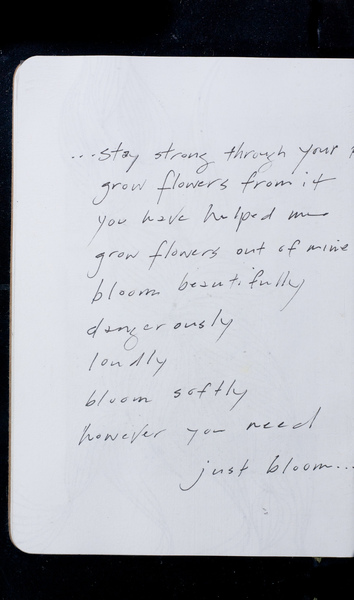 ...stay strong through your
grow flowers from it
you have helped me
grow flowers out of mine
bloom beautifully
dangerously
loudly
bloom softly
however you need
just bloom...